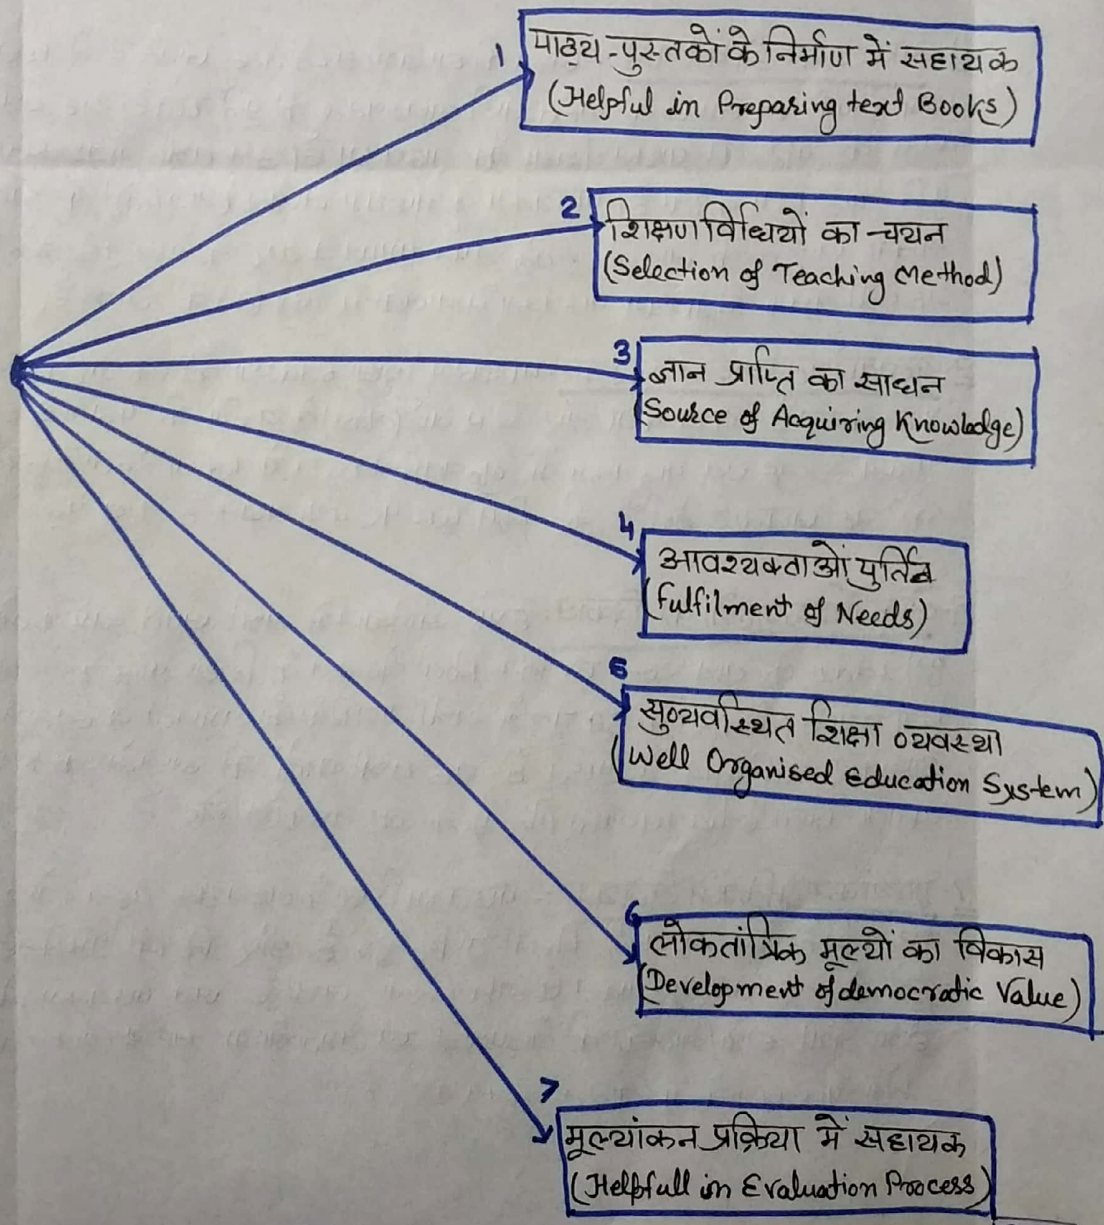 1
पाठ्य-पुस्तकों के निर्माण में सहायक
(Helpful in Preparing text Books)
2
शिक्षण विधियों का चयन
(Selection of Teaching Method)
3
ज्ञान प्राप्ति का साधन
(Source of Acquiring Knowledge)
4
आवश्यकताओं
(Fulfilment of Needs)
5
सुव्यवस्थित शिक्षा व्यवस्था
(Well Organised Education System)
6
लोकतांत्रिक मूल्यों का विकास
(Development of democratic Value)
7
मूल्यांकन प्रक्रिया में सहायक
(Helpfull in Evaluation Process)